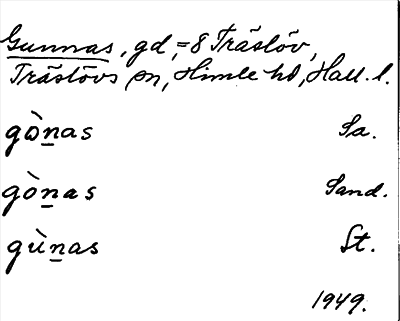 Gunnas, gd, = 8 Träslöv,
Träslövs sn, Himle hd, Hall. l.
gò̱nas Sa.
gòn̲as Sand.
gùn̲as St.
1949.